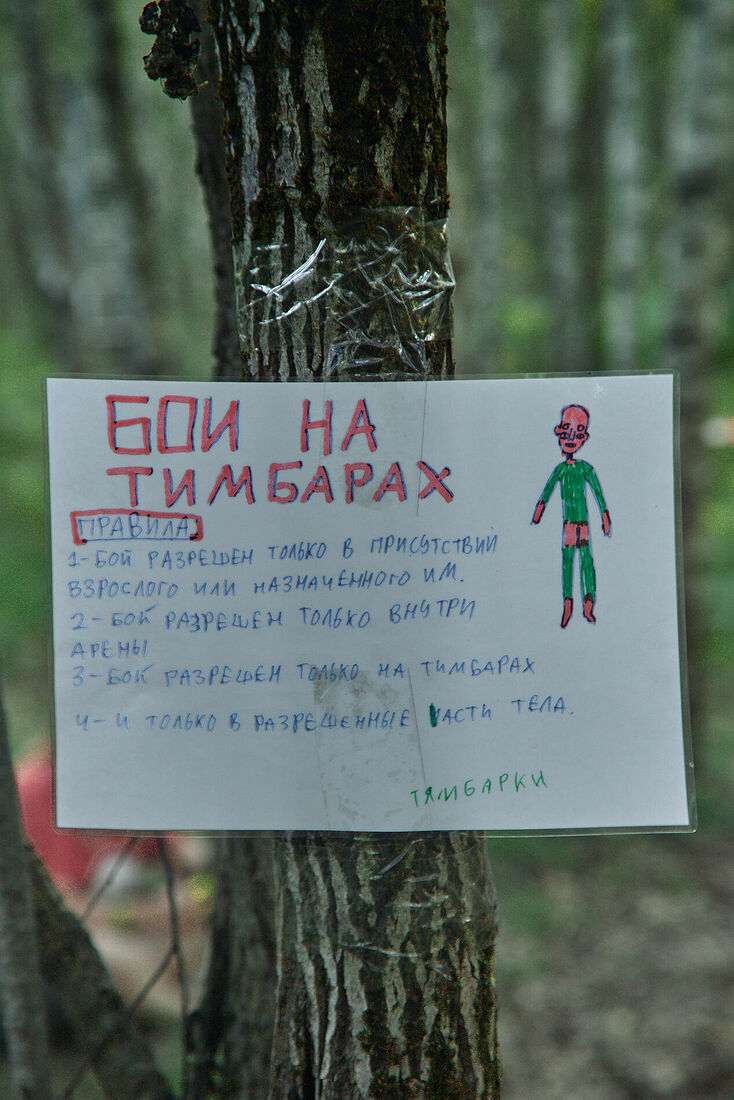 БОИ НА
ТИМБАРАХ
ПРАВИЛА
1-БОЙ РАЗРЕШЕН ТОЛЬКО В ПРИСУТСТВИИ
ВЗРОСЛОГО ИЛИ НАЗНАЧЕННОГО ИМ.
2-БОЙ РАЗРЕШЕН ТОЛЬКО ВНУТРИ
АРЕНЫ
3-БОЙ РАЗРЕШЕН ТОЛЬКО НА ТИМБАРАХ
4-И ТОЛЬКО В РАЗРЕШЕННЫЕ ЧАСТИ ТЕЛА.
ТЯМБАРКИ